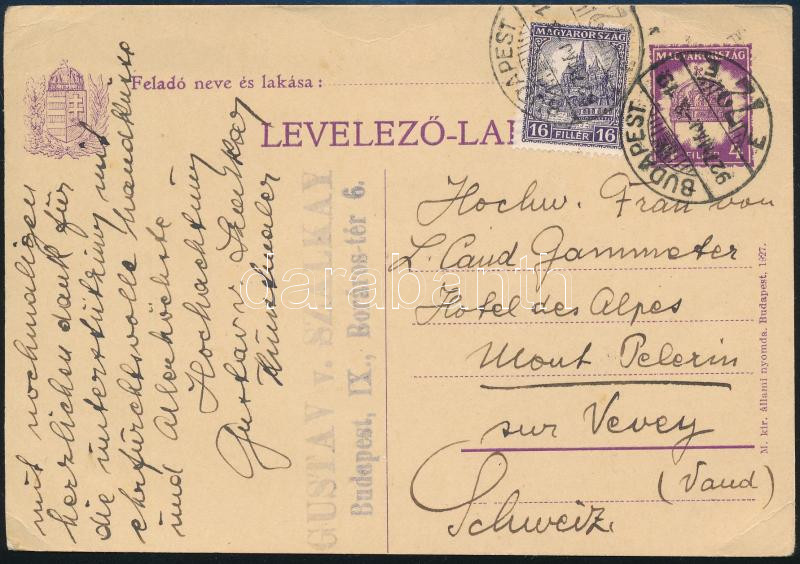 Feladó neve és lakása :
LEVELEZŐ-LAP
MAGYARORSZÁG
16 FILLÉR 16
MAGYARORSZÁG
FILLÉR 4
BUDAPEST
BUDAPEST
Hochw. Frau von
L. Caud Gammeter
Hotel des Alpes
Mont Pelerin
sur Vevey
(Vaud)
Schweiz.
mit nochmaligen
herzlichen dank für
die unterstützung mit
ehrfürchtsvolle handküsse
und Allerhöchste
Hochachtung
Gustav v. Szalkay
Kunstmaler
GUSTAV v. SZALKAY
Budapest, IX., Boráros-tér 6.
M. kir. állami nyomda. Budapest, 1927.
carabanth